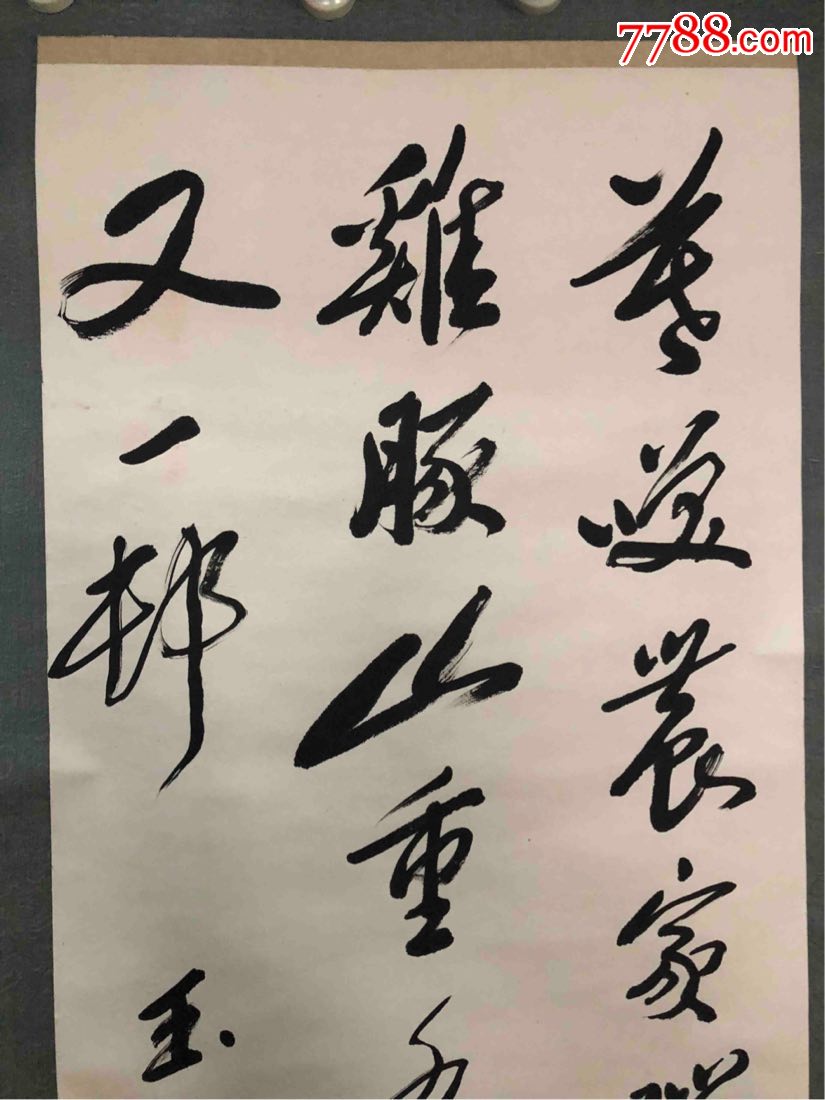 7788.com
莫咲農家
雞豚山重水
又一邨 玉